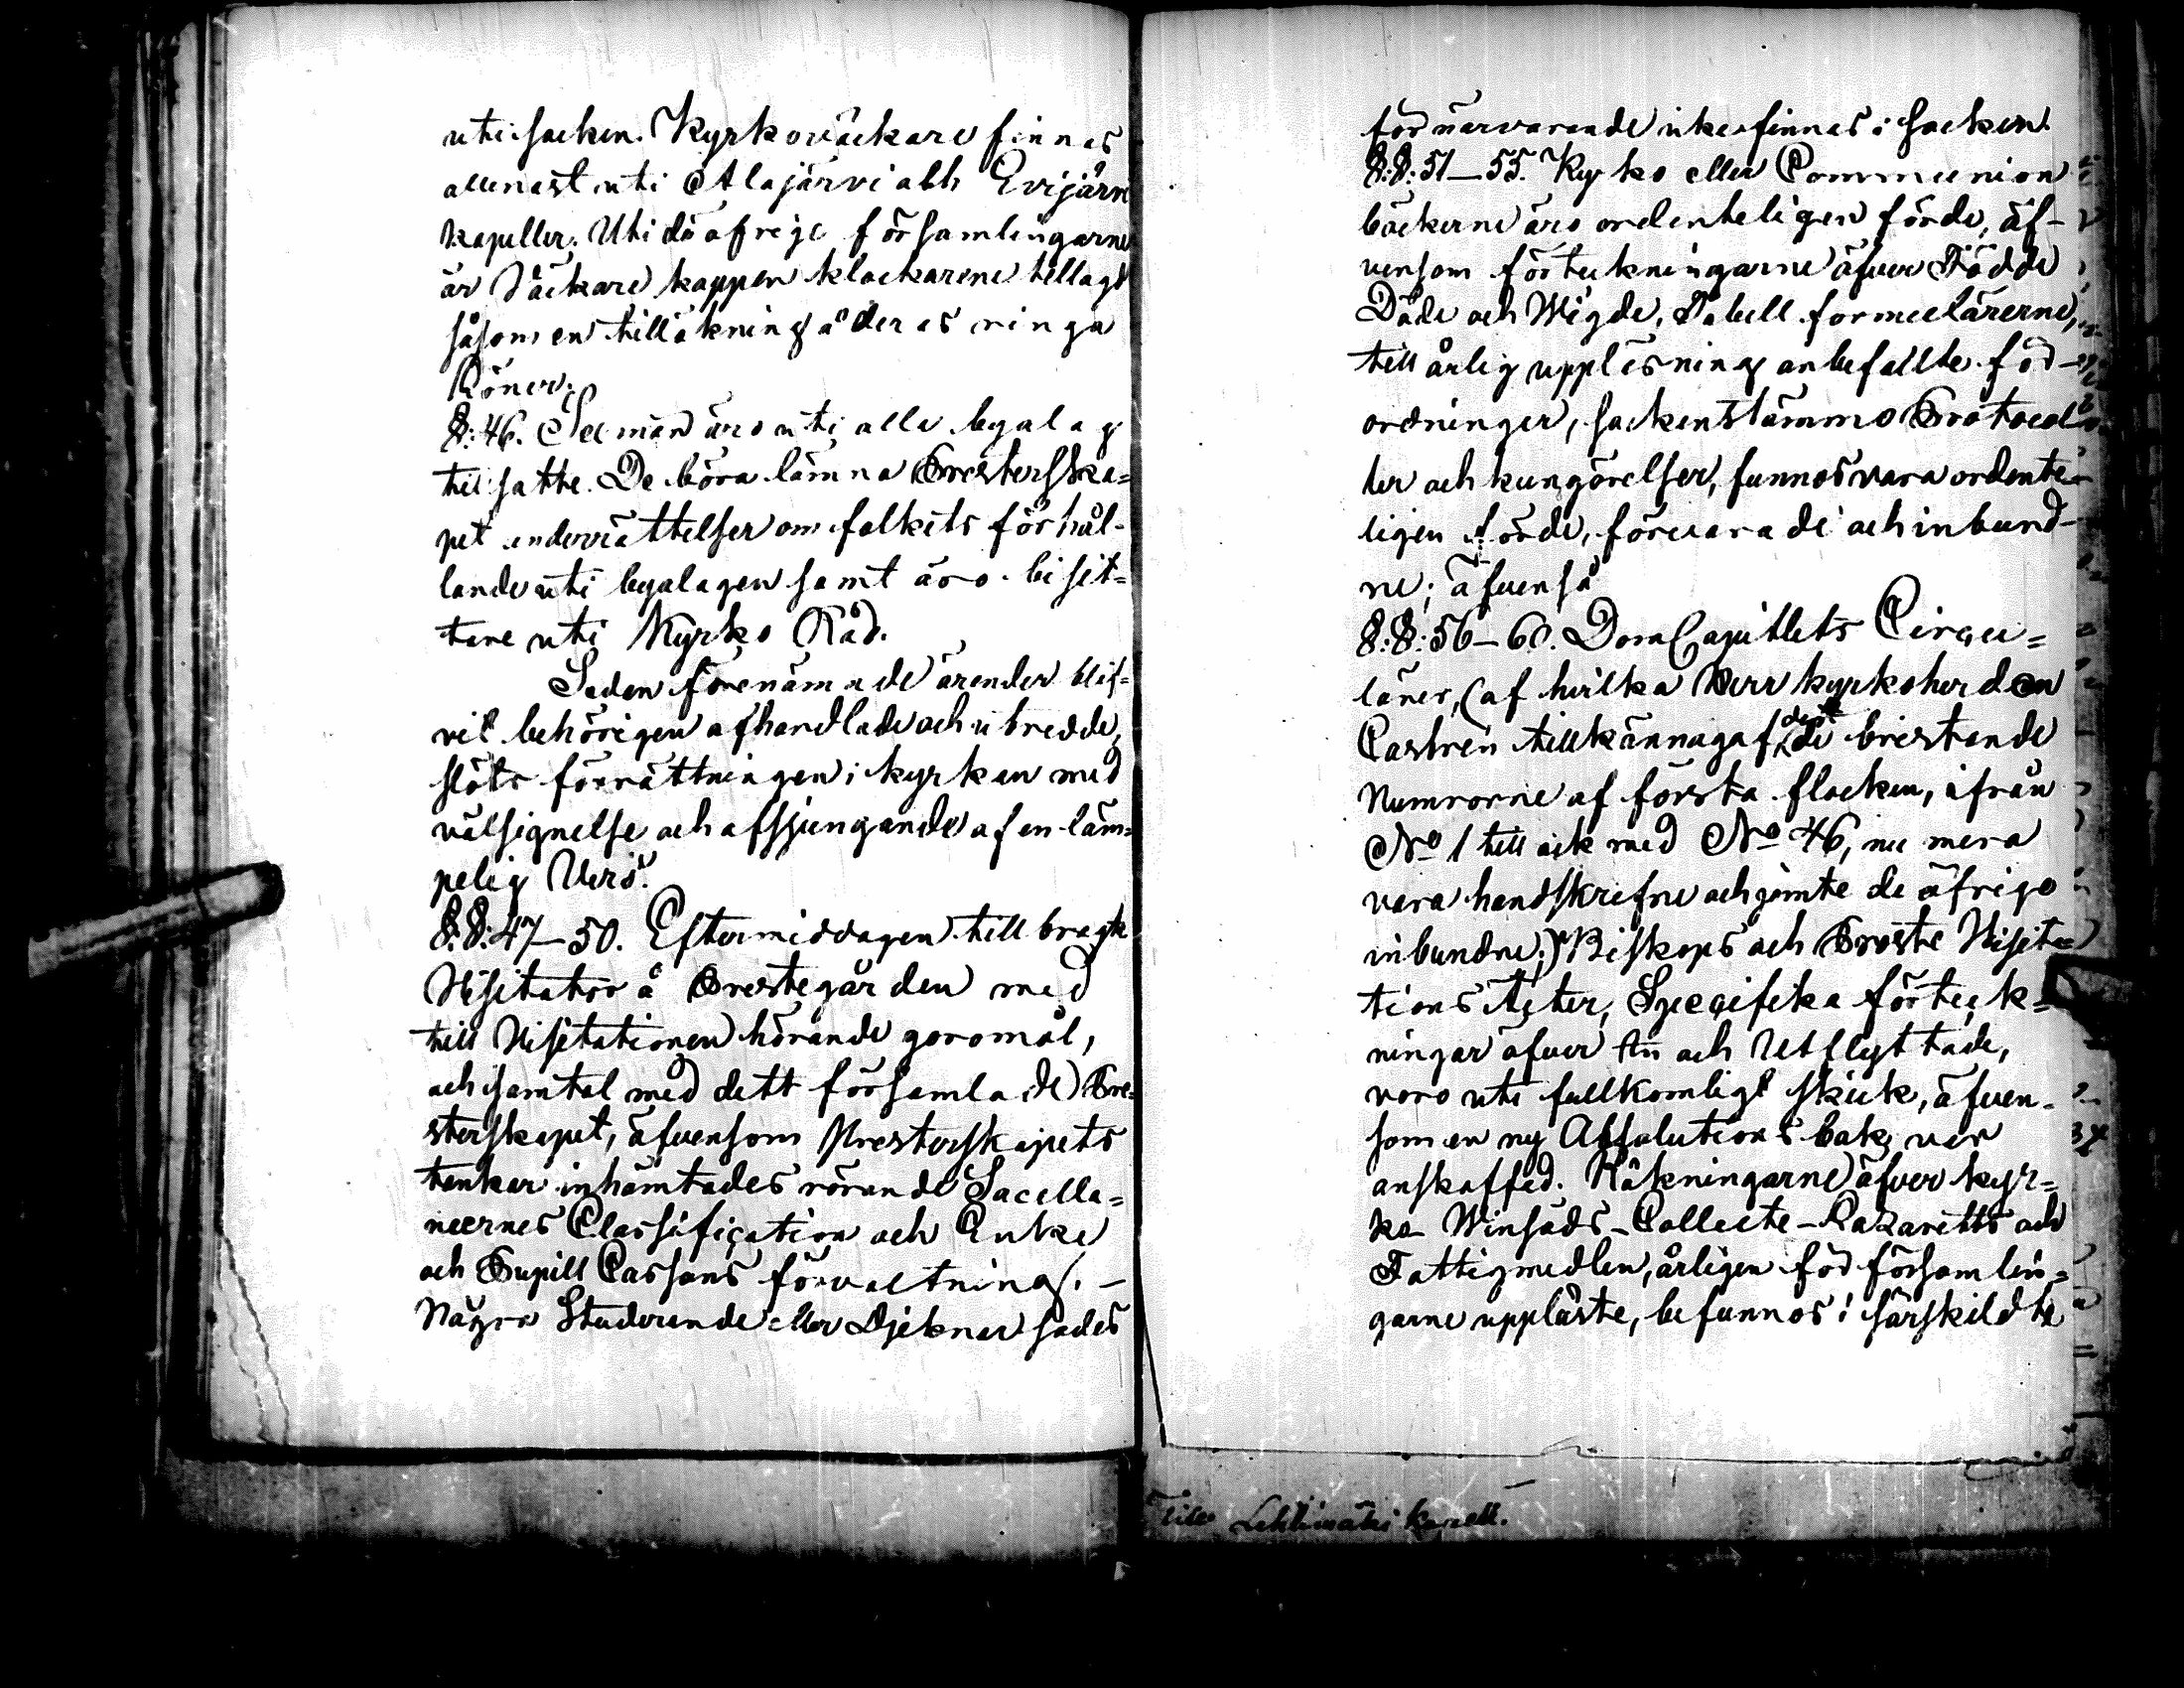 uti socken. Kyrkoväckare finnas
allenast uti Alajärvi och Evijärvi
kapeller. Uti de öfrige församlingarne
är Väckare kappen klockarene tillagd
såsom en tillökning å deras ringa
löner.
§: 46. Sexmän äro uti alla byalag
tillsatte. De böra lämna Presterska=
pet underrättelser om folkets förhål-
lande uti byalagen samt äro bisit=
tare uti Kyrko Råd.
Sedan förenämnde ärender blif=
vit behörigen afhandlade och utredde,
slöts förrättningen i kyrkan med
välsignelse och afsjungande af en läm=
pelig Vers.
§:§: 47–50. Eftermiddagen tillbragte
Visitator å Prestegården med
till Visitationen hörande göromål,
och samtal med dett församlade Pre=
sterskapet, äfvensom Presterskapets
tankar inhämtades rörande Sacella=
neernes Classification och Enke
och Pupill Cassans förvaltning. –
Några Studerande eller Djeknar sades
för närvarande icke finnas i socken.
§:§: 51–55. Kyrko eller Communion
böckerne äro ordenteligen förde, äf-
vensom förteckningarne öfver Födde
Döde och Wigde, Tabell formulärerne,
till årlig uppläsning anbefallte för-
ordningar, sockenstämmo Protocol
ler och kungörelser, funnos vara ordente
ligen förde, förvarade och inbund-
ne; äfvenså
§:§: 56–60. DomCapitlets Circu=
lärer, (af hvilka Herr kyrkoherden
Castrén tillkännagaf de bristande
Numrorne af första flocken, ifrån
No 1 till och med No 46, nu mera
vara handskrefne och jämte de öfrige
inbundne;) Biskops och Proste Visita=
tions Acter, Specifika förteck=
ningar öfver In och Utflyttade,
voro uti fullkomligt skick, äfven-
som en ny Absolutions bok var
anskaffad. Räkningarne öfver kyr=
ko- Winsäds- Collecte- Lazaretts och
Fattigmedlen, årligen för församlin=
garne uppläste, befunnos i särskildte
Lehtimäki kapell.